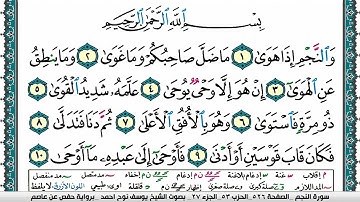 بِسْمِ اللَّهِ الرَّحْمَٰنِ الرَّحِيمِ
وَالنَّجْمِ إِذَا هَوَىٰ ١ مَا ضَلَّ صَاحِبُكُمْ وَمَا غَوَىٰ ٢ وَمَا يَنطِقُ
عَنِ الْهَوَىٰ ٣ إِنْ هُوَ إِلَّا وَحْيٌ يُوحَىٰ ٤ عَلَّمَهُ شَدِيدُ الْقُوَىٰ ٥
ذُو مِرَّةٍ فَاسْتَوَىٰ ٦ وَهُوَ بِالْأُفُقِ الْأَعْلَىٰ ٧ ثُمَّ دَنَا فَتَدَلَّىٰ ٨
فَكَانَ قَابَ قَوْسَيْنِ أَوْ أَدْنَىٰ ٩ فَأَوْحَىٰ إِلَىٰ عَبْدِهِ مَا أَوْحَىٰ ١٠
سورة النجم الصفحة ٥٢٦ الحزب ٥٣ الجزء ٢٧ بصوت الشيخ يوسف نوح احمد برواية حفص عن عاصم